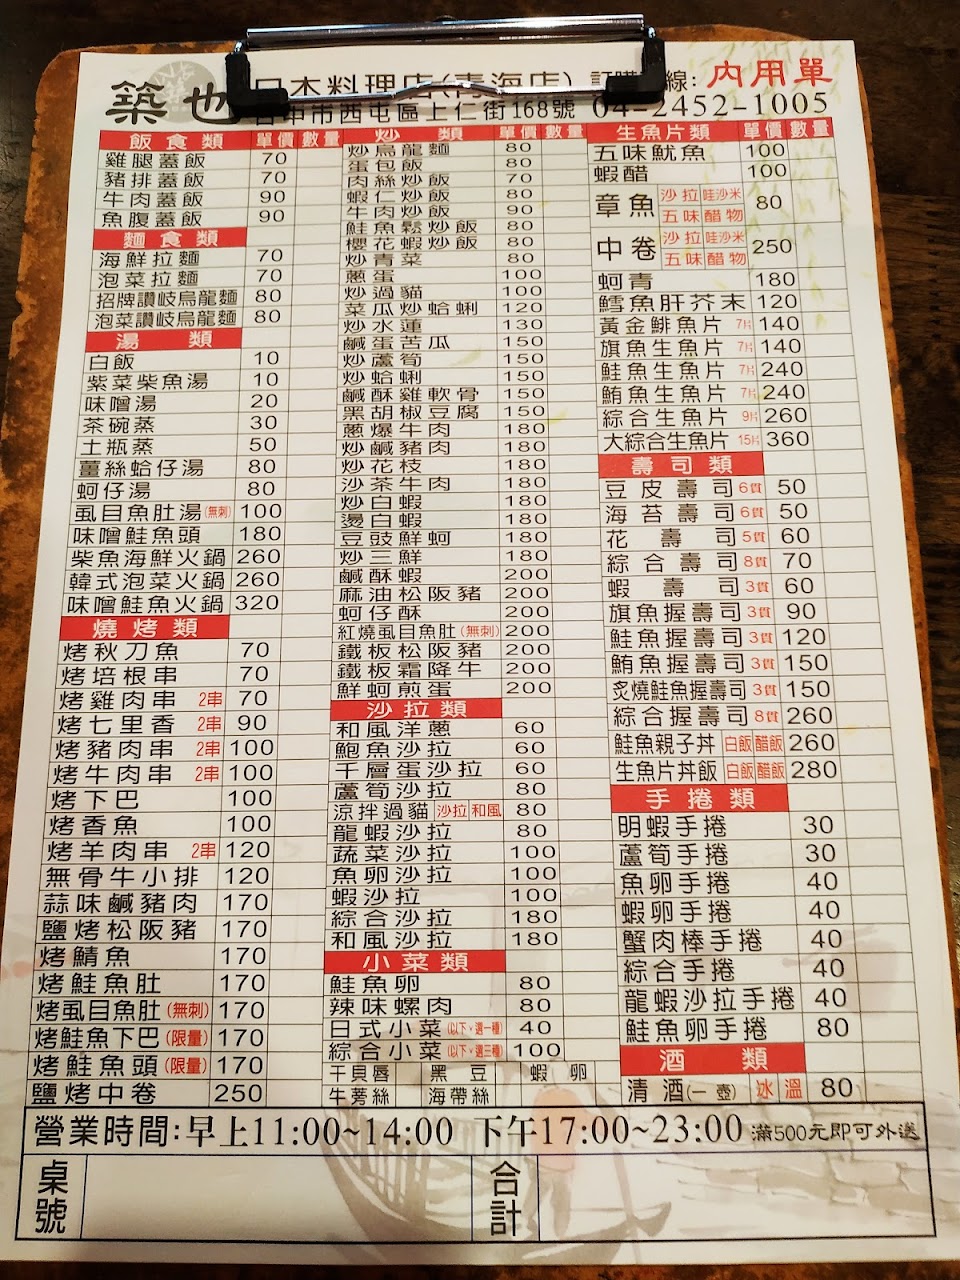 築也 日本料理店(青海店) 訂購 線: 內用單
台中市西屯區上仁街168號 04-2452-1005
飯食類 單價 數量
雞腿蓋飯 70
豬排蓋飯 70
牛肉蓋飯 90
魚腹蓋飯 90
麵食類
海鮮拉麵 70
泡菜拉麵 70
招牌讚岐烏龍麵 80
泡菜讚岐烏龍麵 80
湯類
白飯 10
紫菜柴魚湯 10
味噌湯 20
茶碗蒸 30
土瓶蒸 50
薑絲蛤仔湯 80
蚵仔湯 80
虱目魚肚湯(無刺) 100
味噌鮭魚頭 180
柴魚海鮮火鍋 260
韓式泡菜火鍋 260
味噌鮭魚火鍋 320
燒烤類
烤秋刀魚 70
烤培根串 70
烤雞肉串 2串 70
烤七里香 2串 90
烤豬肉串 2串 100
烤牛肉串 2串 100
烤下巴 100
烤香魚 100
烤羊肉串 2串 120
無骨牛小排 120
蒜味鹹豬肉 170
鹽烤松阪豬 170
烤鯖魚 170
烤鮭魚肚 170
烤虱目魚肚(無刺) 170
烤鮭魚下巴(限量) 170
烤鮭魚頭(限量) 170
鹽烤中卷 250
炒類 單價 數量
炒烏龍麵 80
蛋包飯 80
肉絲炒飯 70
蝦仁炒飯 80
牛肉炒飯 90
鮭魚鬆炒飯 80
櫻花蝦炒飯 80
炒青菜 80
蔥蛋 100
炒過貓 100
菜瓜炒蛤蜊 120
炒水蓮 130
鹹蛋苦瓜 150
炒蘆筍 150
炒蛤蜊 150
鹹酥雞軟骨 150
黑胡椒豆腐 150
蔥爆牛肉 180
炒鹹豬肉 180
炒花枝 180
沙茶牛肉 180
炒白蝦 180
燙白蝦 180
豆豉鮮蚵 180
炒三鮮 180
鹹酥蝦 200
麻油松阪豬 200
蚵仔酥 200
紅燒虱目魚肚(無刺) 200
鐵板松阪豬 200
鐵板霜降牛 200
鮮蚵煎蛋 200
沙拉類
和風洋蔥 60
鮑魚沙拉 60
千層蛋沙拉 60
蘆筍沙拉 80
涼拌過貓 沙拉 和風 80
龍蝦沙拉 80
蔬菜沙拉 100
魚卵沙拉 100
蝦沙拉 100
綜合沙拉 180
和風沙拉 180
小菜類
鮭魚卵 80
辣味螺肉 80
日式小菜(以下，選一種) 40
綜合小菜(以下，選三種) 100
干貝唇 黑豆 蝦卵
牛蒡絲 海帶絲
生魚片類 單價 數量
五味魷魚 100
蝦醋 100
章魚 沙拉 哇沙米 五味 醋物 80
中卷 沙拉 哇沙米 五味 醋物 250
蚵青 180
鱈魚肝芥末 120
黃金鯡魚片 7片 140
旗魚生魚片 7片 140
鮭魚生魚片 7片 240
鮪魚生魚片 7片 240
綜合生魚片 9片 260
大綜合生魚片 15片 360
壽司類
豆皮壽司 6貫 50
海苔壽司 6貫 50
花壽司 5貫 60
綜合壽司 8貫 70
蝦壽司 3貫 60
旗魚握壽司 3貫 90
鮭魚握壽司 3貫 120
鮪魚握壽司 3貫 150
炙燒鮭魚握壽司 3貫 150
綜合握壽司 8貫 260
鮭魚親子丼 白飯 醋飯 260
生魚片丼飯 白飯 醋飯 280
手捲類
明蝦手捲 30
蘆筍手捲 30
魚卵手捲 40
蝦卵手捲 40
蟹肉棒手捲 40
綜合手捲 40
龍蝦沙拉手捲 40
鮭魚卵手捲 80
酒類
清酒(一壺) 冰 溫 80
營業時間:早上11:00~14:00 下午17:00~23:00 滿500元即可外送
桌號 合計